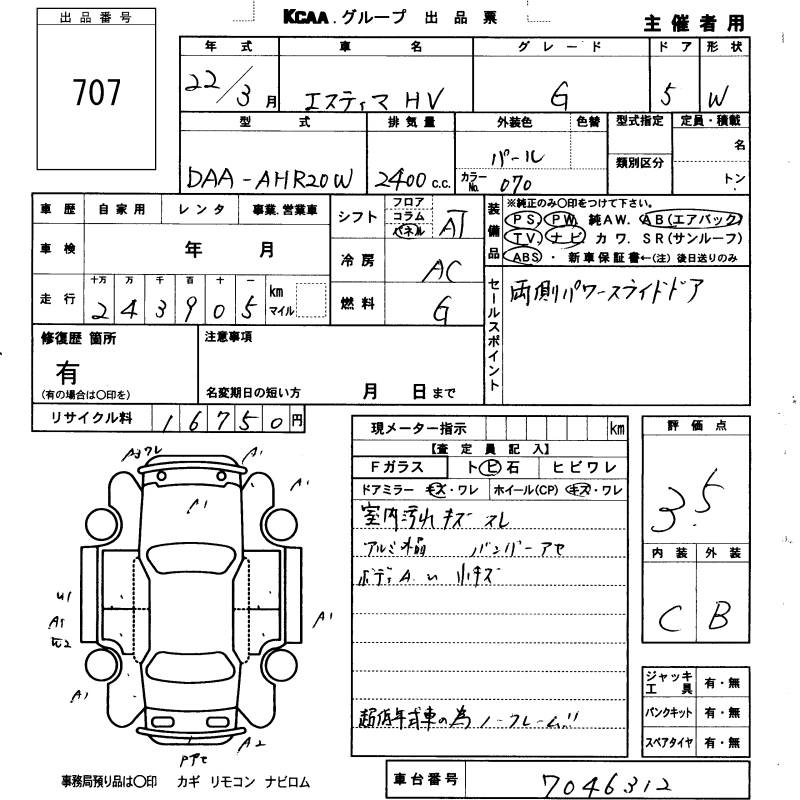 出品番号
707
KCAA.グループ 出品票
主催者用
年式 車名 グレード ドア 形状
22/3月 エスティマ HV G 5 W
型式 排気量 外装色 色替 型式指定 定員・積載
DAA-AHR20W 2400c.c. パール 名
カラーNo. 070 類別区分 トン
車歴 自家用 レンタ 事業.営業車
車検 年 月
走行 十万 万 千 百 十 一
2 4 3 9 0 5 km マイル
シフト フロア コラム パネル AT
冷房 AC
燃料 G
装備品
※純正のみ○印をつけて下さい。
PS PW 純AW. AB(エアバック)
TV. ナビ カワ. SR(サンルーフ)
ABS ・ 新車保証書←(注) 後日送りのみ
セールスポイント
両側パワースライドドア
修復歴 箇所
有
(有の場合は○印を)
注意事項
名変期日の短い方 月 日まで
リサイクル料 16750円
現メーター指示 km
【査定員記入】
Fガラス ト ビ 石 ヒビワレ
ドアミラー キズ・ワレ ホイール(CP) キズ・ワレ
室内汚れ キズ スレ
アルミ 水晶 バンパーアセ
ボディA.u 小キズ
超低年式車の為 ノークレーム!!
評価点
3.5
内装 外装
C B
ジャッキ工具 有・無
パンクキット 有・無
スペアタイヤ 有・無
A3ワレ A1
A1 A1
U1
A1
A1
A1 A2
事務局預り品は○印 カギ リモコン ナビロム
車台番号 7046312